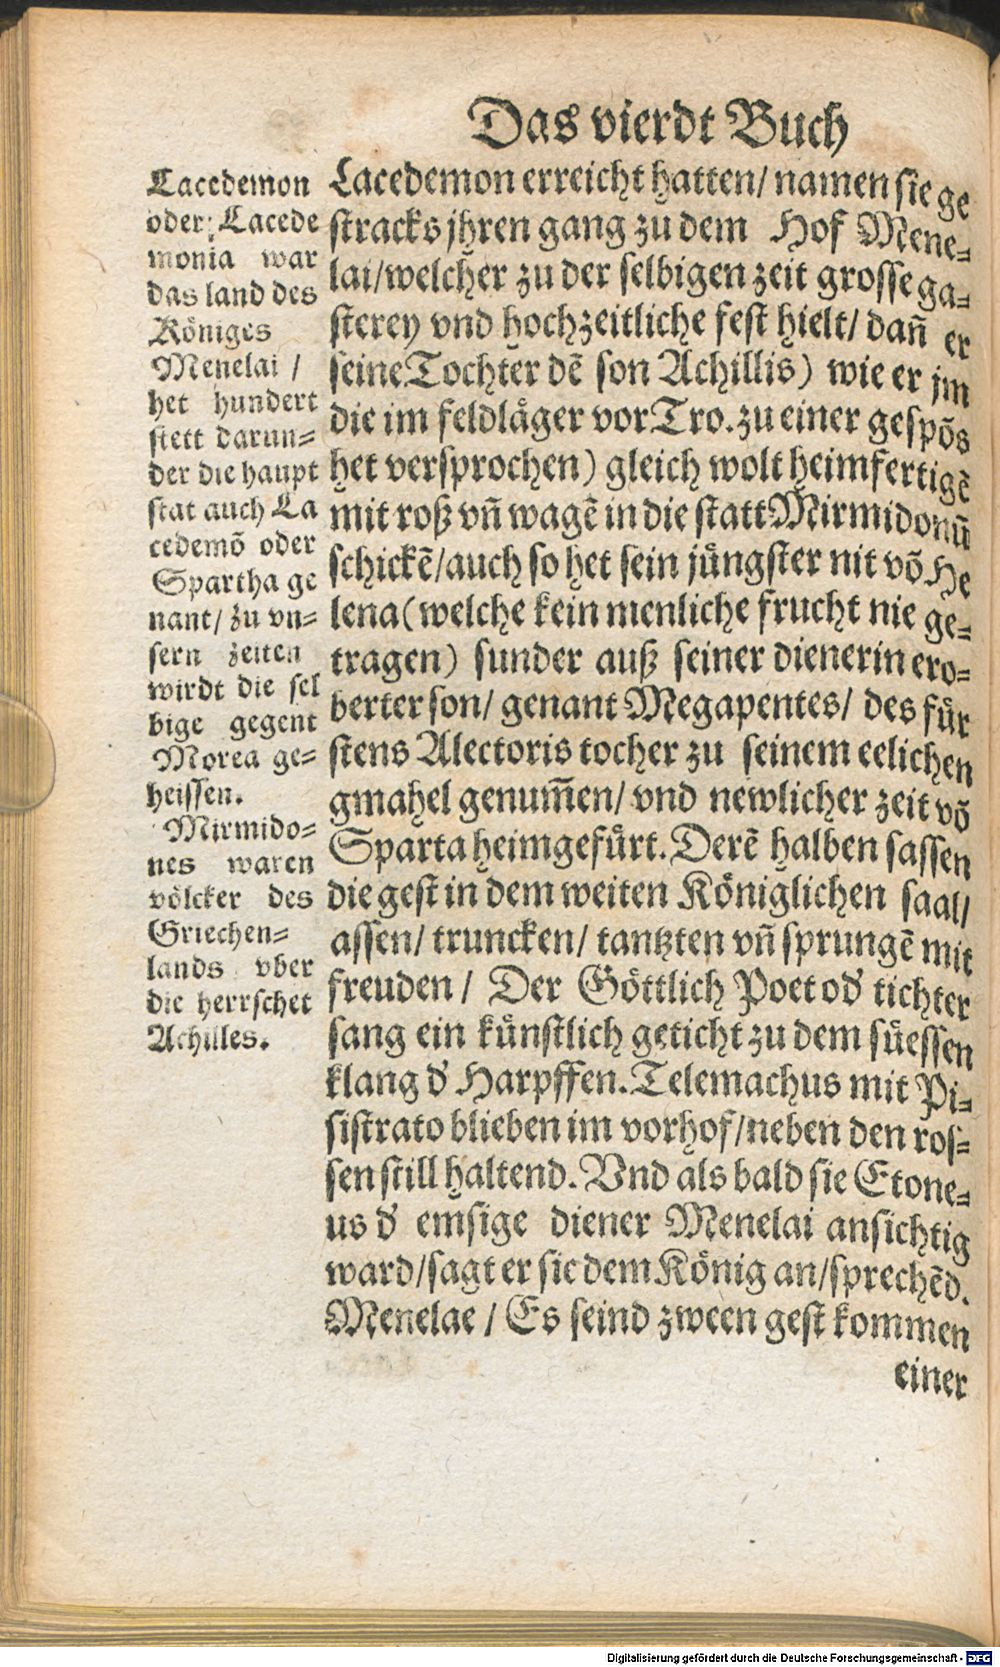 Das vierdt Buch
Lacedemon
oder Lacede
monia war
das land des
Königes
Menelai /
het hundert
stett darun=
der die haupt
stat auch La
cedemõ oder
Spartha ge
nant/ zu vn=
sern zeiten
wirdt die sel
bige gegent
Morea ge=
heissen.
Mirmido=
nes waren
völcker des
Griechen=
lands vber
die herrschet
Achilles.
Lacedemon erreicht hatten/ namen sie ge
stracks jhren gang zu dem Hof Mene=
lai/welcher zu der selbigen zeit grosse ga=
sterey vnd hochzeitliche fest hielt/ dañ er
seine Tochter dẽ son Achillis) wie er jm
die im feldläger vor Tro. zu einer gespõs
het versprochen) gleich wolt heimfertigẽ
mit roß vñ wagẽ in die statt Mirmidonũ
schickẽ/auch so het sein jüngster nit võ He
lena (welche kein menliche frucht nie ge=
tragen) sunder auß seiner dienerin ero=
berter son/ genant Megapentes/ des für
stens Alectoris tocher zu seinem eelichen
gmahel genum̃en/ vnd newlicher zeit võ
Sparta heimgefürt. Derẽ halben sassen
die gest in dem weiten Königlichen saal/
assen/ truncken/ tantzten vñ sprungẽ mit
freuden/ Der Göttlich Poet od' tichter
sang ein künstlich geticht zu dem süessen
klang d' Harpffen. Telemachus mit Pi=
sistrato blieben im vorhof/neben den ros=
sen still haltend. Vnd als bald sie Etone=
us d' emsige diener Menelai ansichtig
ward/sagt er sie dem König an/sprechẽd.
Menelae / Es seind zween gest kommen
einer
Digitalisierung gefördert durch die Deutsche Forschungsgemeinschaft - DFG